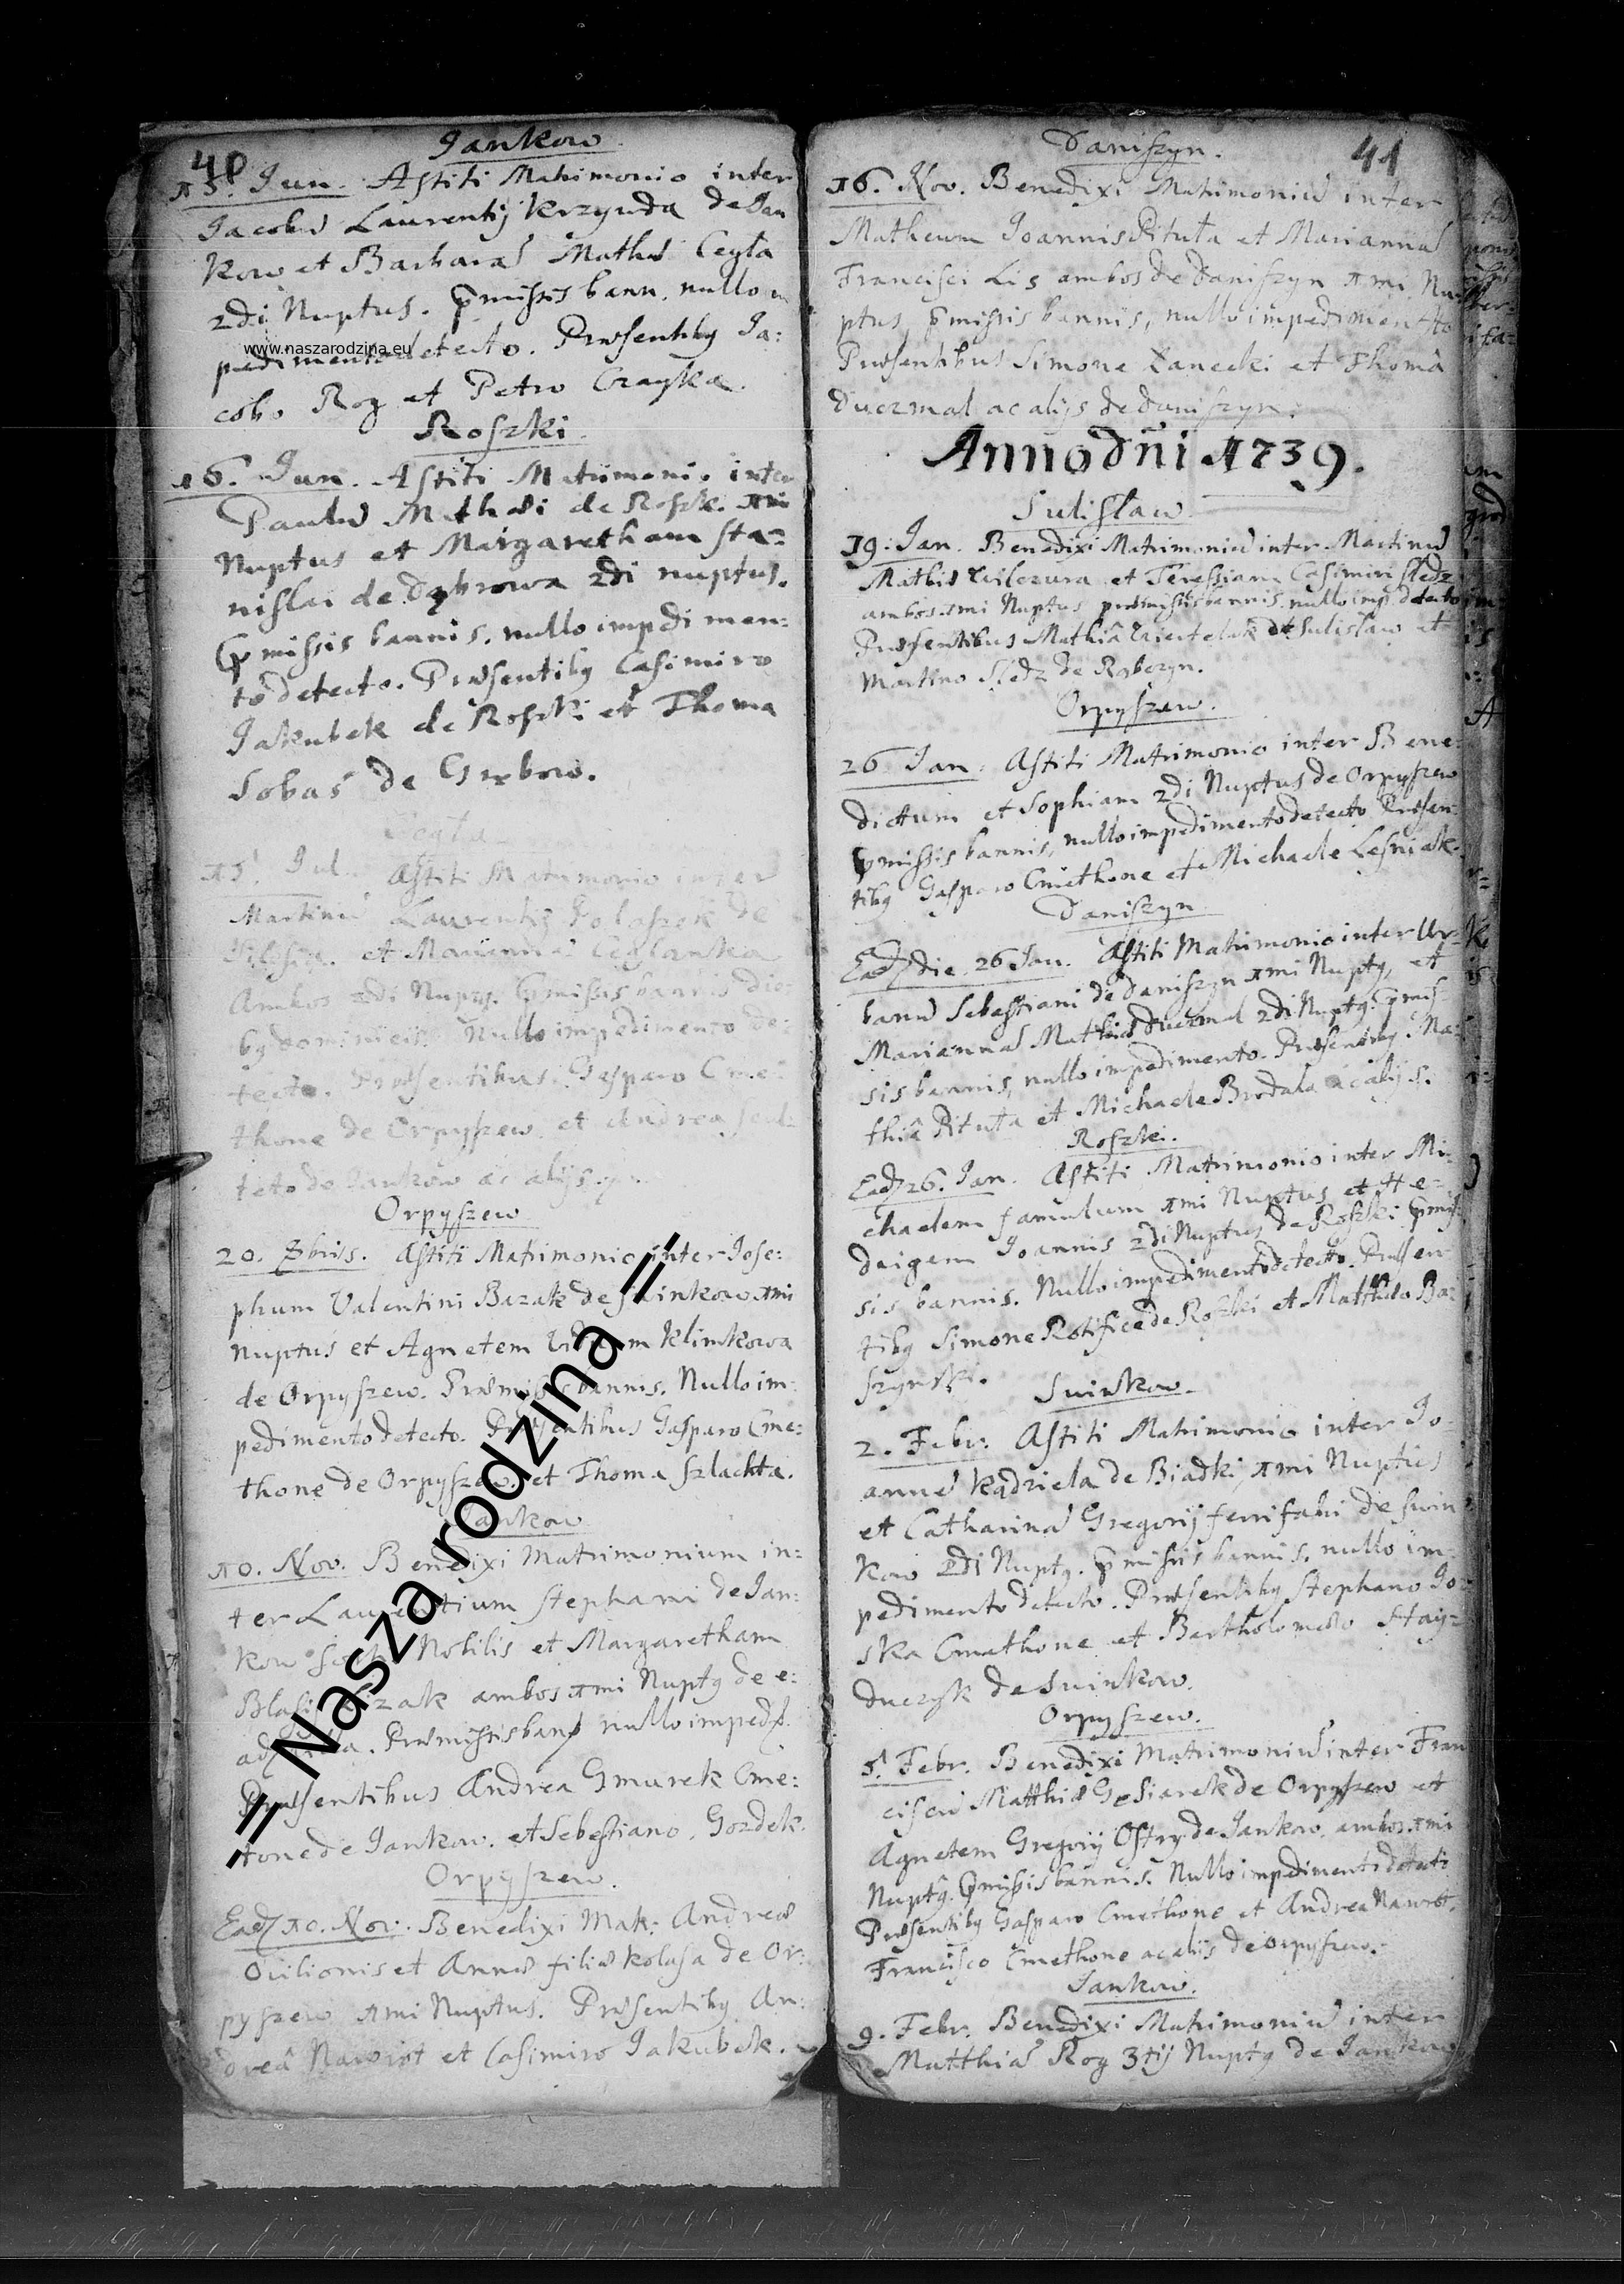 40
Jankow
15. Jun. Astiti Matrimonio inter
Jacobū Laurentij Krzyuda de Jan
kow et Barbarā Mathæi Cegła
2di Nuptus. p̄missis bann. nullo im
pedimento detecto. Præsentibq Ja:
cobo Rog et Petro Czayka.
Roszki.
16. Jun. Astiti Matrimonio inter
Paulū Mathæi de Roszk. 1mi
Nuptus et Margaretham Sta=
nislai de Dąbrowa 2di nuptus.
p̄missis bannis. nullo impedimen=
to detecto. Præsentibq Casimiro
Jakubek de Roszki et Thoma
Sobas de
15. Jul. Astiti Matrimonio inter
Martinū Laurentij de
et Mariannā Ceglanka
Ambos 2di Nuptq. p̄missis bannis die:
bq dominicis. Nullo impedimento de:
tecto. Præsentibus Gasparo Cme:
thone de Orpyszew et Andrea Scul:
teto de Jankow ac alijs.
Orpyszew
20. 7bris. Astiti Matrimonio inter Jose:
phum Valentini Bazak de Swinkow 1mi
nuptus et Agnetem Viduam Klimkowa
de Orpyszew. Præmissis bannis. Nullo im:
pedimento detecto. Præsentibus Gasparo Cme:
thone de Orpyszew. et Thoma Szlachta.
Jankow
10. Nov. Benedixi Matrimonium in:
ter Laurentium Stephani de Jan:
kow Nobilis et Margaretham
Blasij ambos 1mi Nuptq de e:
ad. Præmissis ban nullo imped.
Præsentibus Andrea Gmurek Cme:
tone de Jankow. et Sebastiano. Gozdek.
Orpyszew.
Ead 10. Nov. Benedixi Mat: Andreæ
Ovilionis et Annæ filiæ Kolasa de Or:
pyszew 1mi Nuptus. Præsentibq An:
dreâ Nawrot et Casimiro Jakubek.
41
Daniszyn.
16. Nov. Benedixi Matrimoniū inter
Matheum Joannis Pituła et Mariannā
Francisci Lis ambos de Daniszyn 1mi Nu:
ptus, p̄missis bannis, nullo impedimento
Præsentibus Simone Zanecki et Thomâ
Duczmal ac alijs de Daniszyn.
Anno dñi 1739.
Sulislaw
19. Jan. Benedixi Matrimoniū inter Martinū
Mathiæ Wilczura et Teressiam Casimiri Sledz
ambos 1mi Nuptus præmissis bannis nullo imp. detecto
Præsentibus Mathiâ de Sulislaw et
Martino Sledz de
Orpyszew.
26 Jan. Astiti Matrimonio inter Bene:
dictum et Sophiam 2di Nuptus de Orpyszew
p̄missis bannis, nullo impedimento detecto Præsen:
tibq Gasparo Cmethone et Michaele Lesniak.
Daniszyn
Ead die 26 Jan. Astiti Matrimonio inter Ur:
banū Sebastiani de Daniszyn 1mi Nuptq, et
Mariannā Mathiæ Duczmal 2di Nuptq. p̄mis
sis bannis, nullo impedimento. Præsentibq. Ma:
thiâ Pituła et Michaele Brodala ac alijs.
Roszki.
Ead 26. Jan. Astiti Matrimonio inter Mi:
chaelem famulum 1mi Nuptus et He=
dvigem Joannis 2di Nuptus de Roszki p̄mis
sis bannis. Nullo impedimento detecto. Præsen
tibq Simone Rotifice de Roszki et Matthæo Ba:
szynski.
Swinkow.
2. Febr. Astiti Matrimonio inter Jo
annē Kądziela de Biadki, 1mi Nuptus
et Catharinā Gregorij ferrifabri de Swin
kow 2di Nuptq. p̄missis bannis. nullo im
pedimento detecto. Præsentibq Stephano Jo:
ska Cmethone et Bartholomæo Stay=
duczyk de Swinkow.
Orpyszew.
5. Febr. Benedixi Matrimoniū inter Fran
ciscū Matthiæ Gęsiarek de Orpyszew et
Agnetem Gregorij Ostry de Jankow. ambos 1mi
Nuptq. p̄missis bannis. Nullo impedimento detecto
Præsentibq Gasparo Cmethone et Andrea Nawrot.
Francisco Cmethone ac alijs de Orpyszew.
Jankow.
9. Febr. Benedixi Matrimoniū inter
Matthiā Rog 3tij Nuptq de Jankow
www.naszarodzina.eu
// Nasza rodzina //